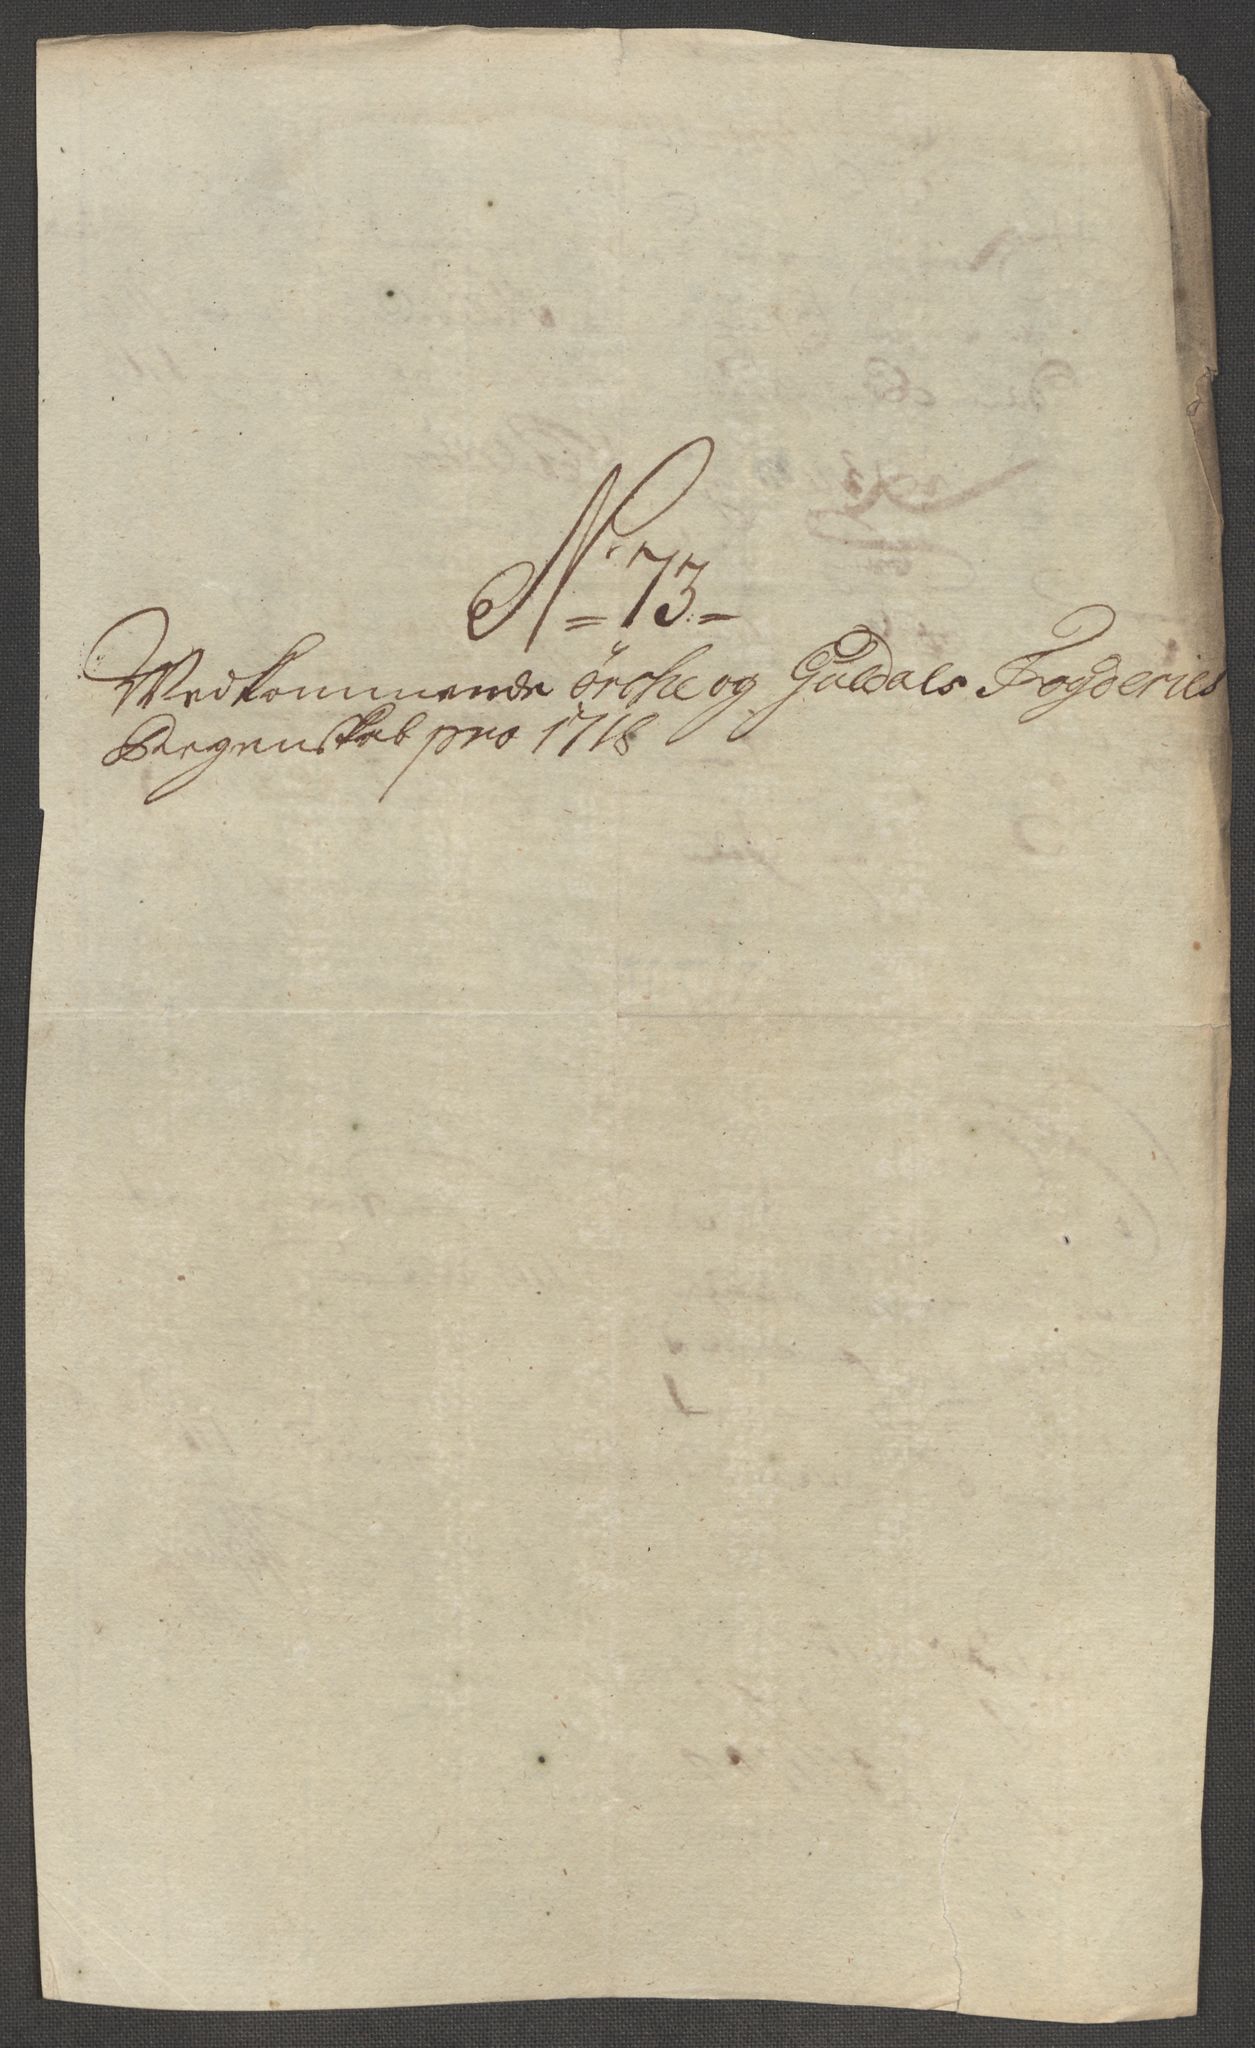 No 73
Wedkommende örche og Guldals Fogderies
Regenskab pro 1718